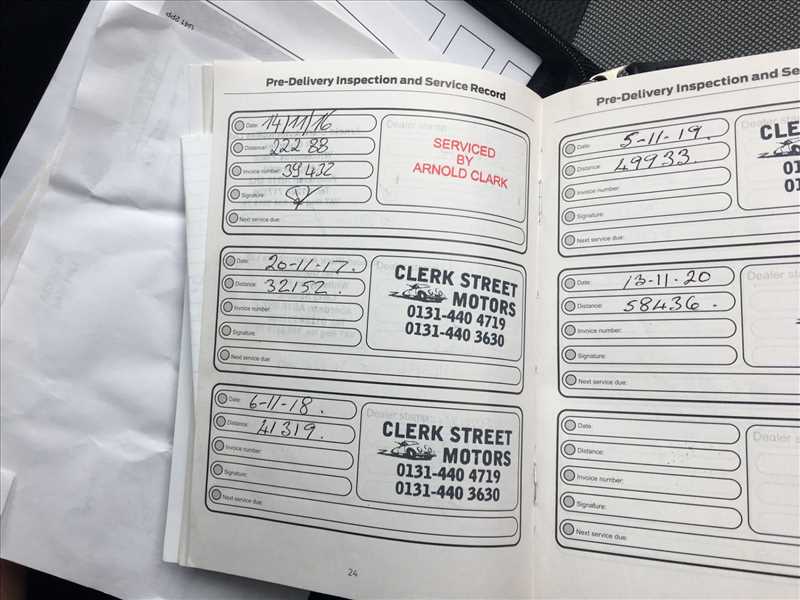 U41 2PP
Pre-Delivery Inspection and Service Record
Date: 14/11/16
Distance: 222 88
Invoice number: 39432
Signature:
Next service due:
Dealer stamp
SERVICED
BY
ARNOLD CLARK
Date: 20-11-17.
Distance: 32152.
Invoice number:
Signature:
Next service due:
CLERK STREET
MOTORS
0131-440 4719
0131-440 3630
Date: 6-11-18.
Distance: 41319.
Invoice number:
Signature:
Next service due:
Dealer stamp
CLERK STREET
MOTORS
0131-440 4719
0131-440 3630
24
Pre-Delivery Inspection and Se
Date: 5-11-19.
Distance: 49933.
Invoice number:
Signature:
Next service due:
CLE
013
01
Date: 13-11-20
Distance: 58436.
Invoice number:
Signature:
Next service due:
Dealer stamp
Date:
Distance:
Invoice number:
Signature:
Next service due:
Dealer st